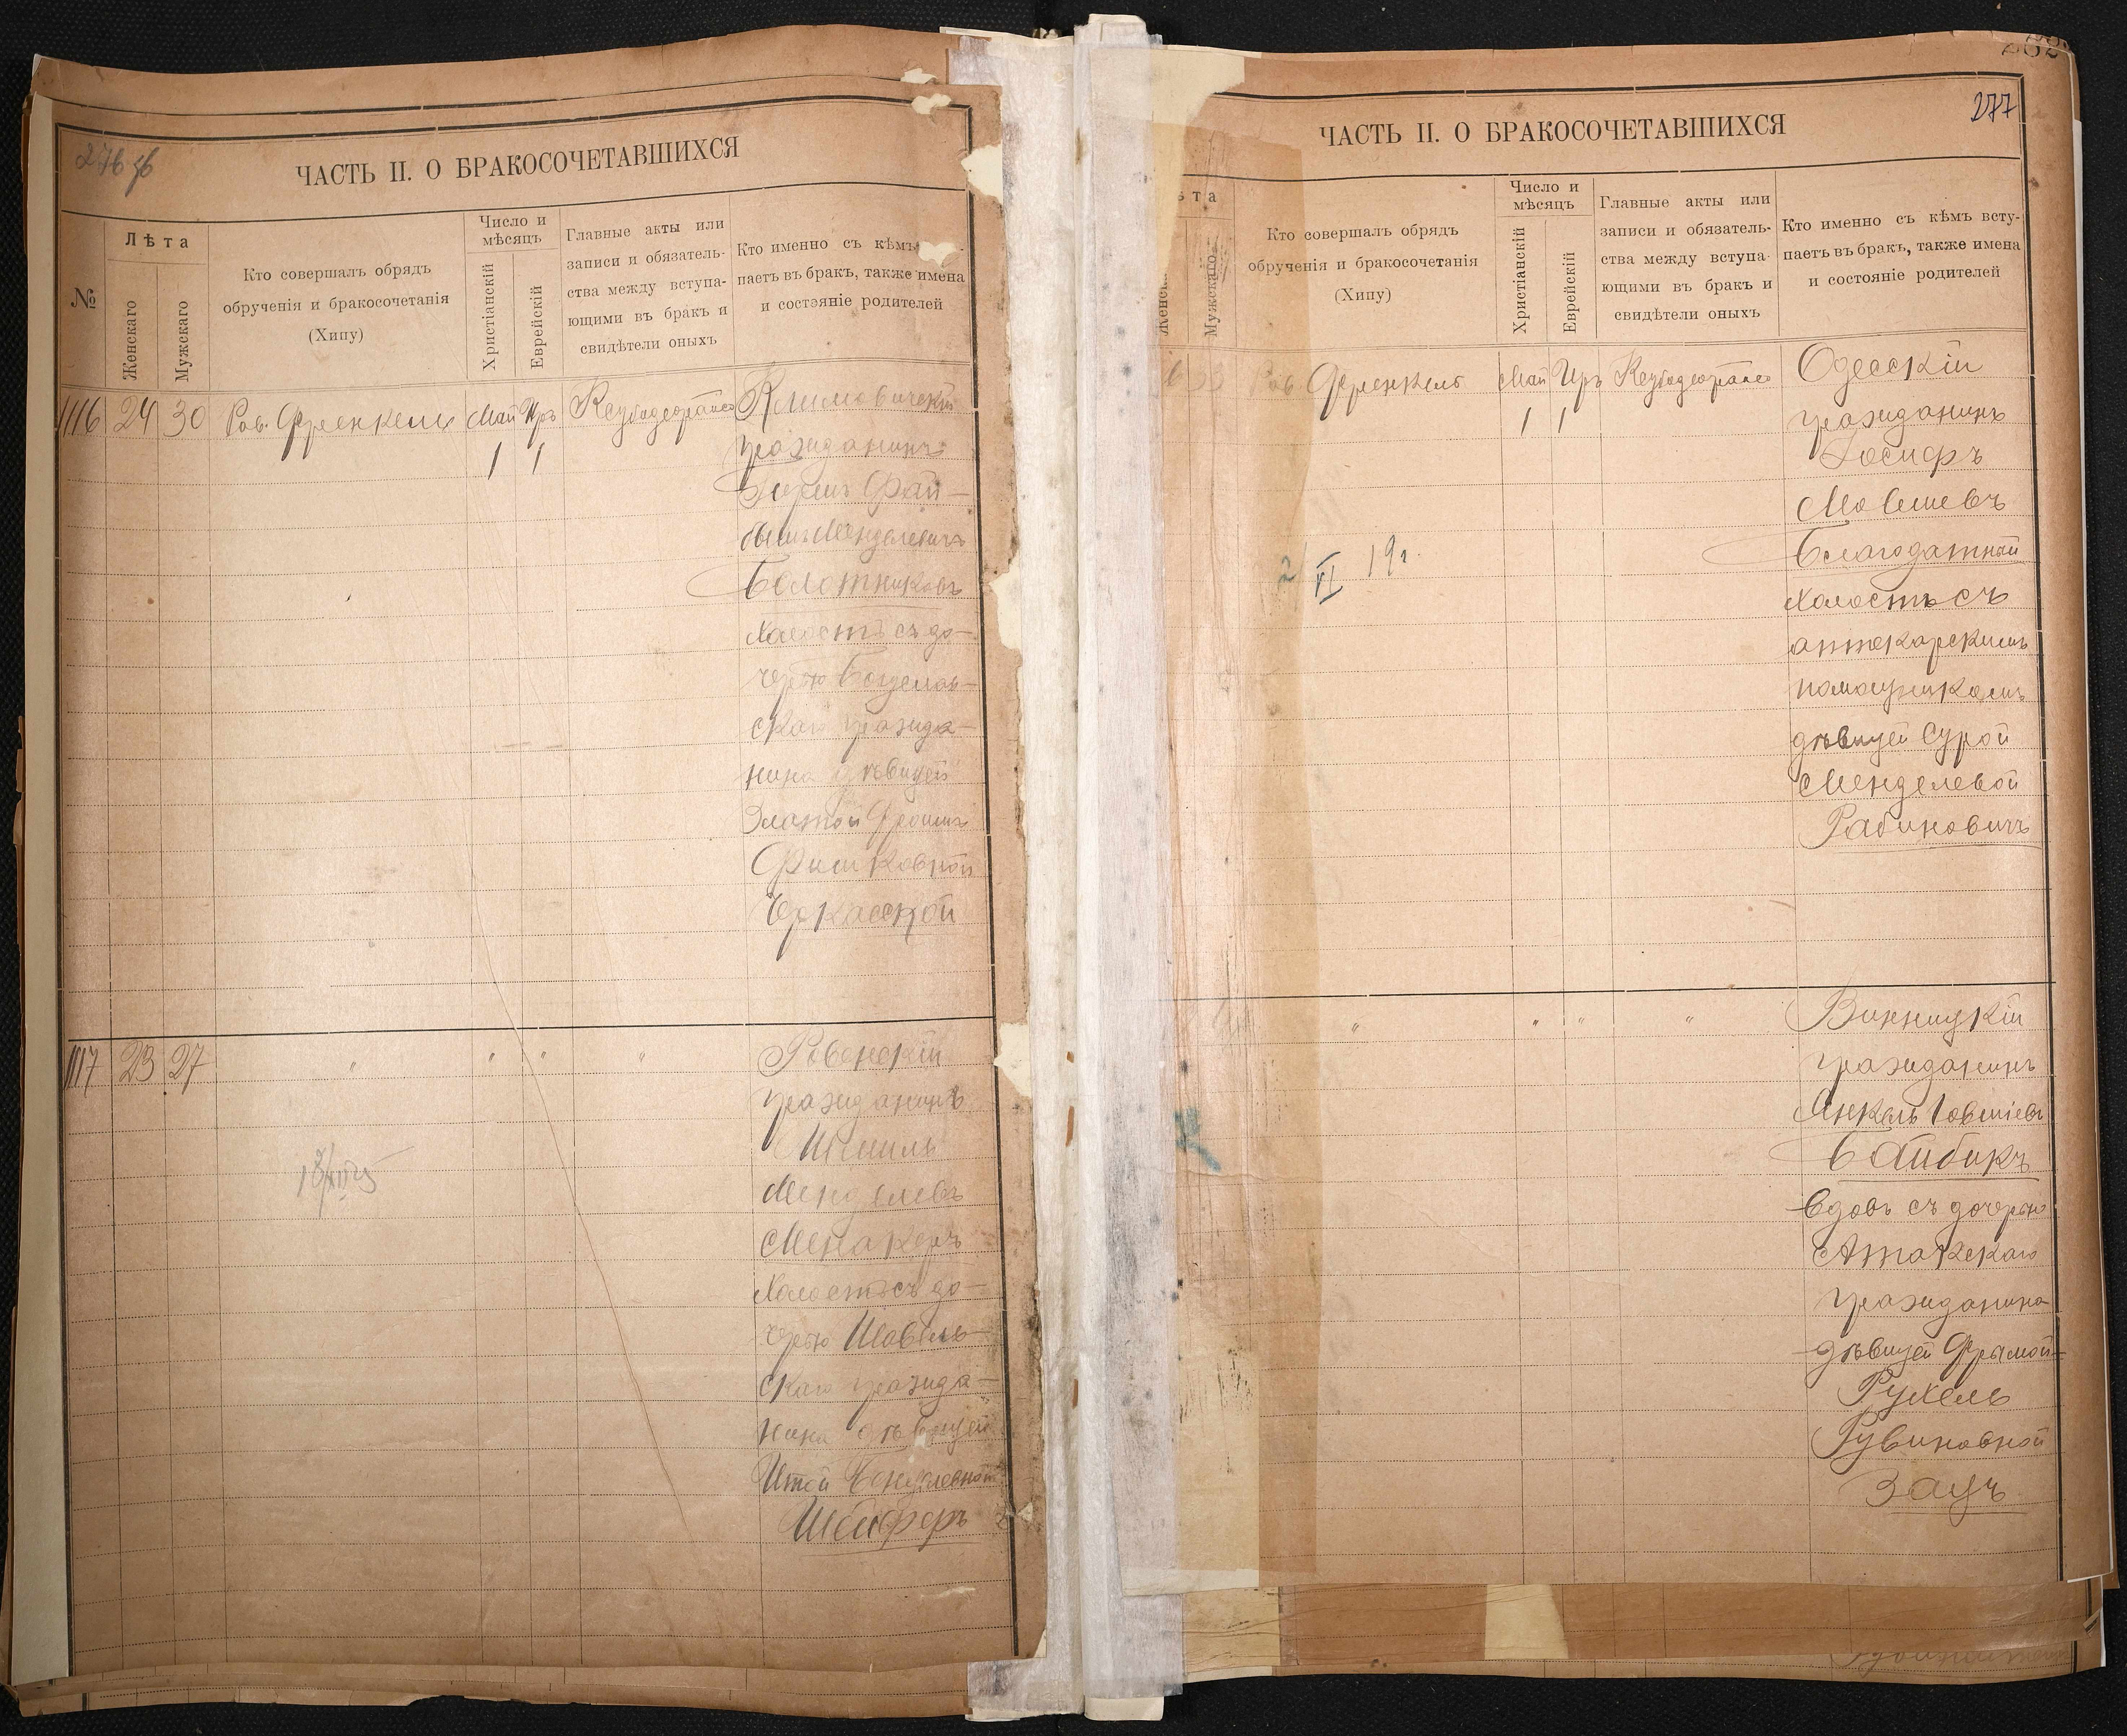 ЧАСТЬ II. О БРАКОСОЧЕТАВШИХСЯ
№
Лѣта
Женскаго
Мужскаго
Кто совершалъ обрядъ
обрученія и бракосочетанія
(Хипу)
Число и
мѣсяцъ
Христіанскій
Еврейскій
Главные акты или
записи и обязатель-
ства между вступа-
ющими въ бракъ и
свидѣтели оныхъ
Кто именно съ кѣмъ
паетъ въ бракъ, также имена
и состояніе родителей
1116 24 30 Рав. Френкель Май Иръ Климовичскій
1 1
гражданинъ
Фай-
Менделевичъ
Болотниковъ
холостъ съ до-
черью
скаго гражда-
нина дѣвицей
Златой Фроим
Фишковной
Черкасской
1117 23 27 " " " " Ровенскій
гражданинъ
Шмиль
Менделевъ
Менакеръ
холостъ съ до-
черью Шавель-
скаго гражда-
нина дѣвицей
Итой
Шейферъ
277
ЧАСТЬ II. О БРАКОСОЧЕТАВШИХСЯ
ѣта
Женск
Мужскаго
Кто совершалъ обрядъ
обрученія и бракосочетанія
(Хипу)
Число и
мѣсяцъ
Христіанскій
Еврейскій
Главные акты или
записи и обязатель-
ства между вступа-
ющими въ бракъ и
свидѣтели оныхъ
Кто именно съ кѣмъ всту-
паетъ въ бракъ, также имена
и состояніе родителей
Рав Френкель Май Иръ Одесскій
1 1
гражданинъ
Іосифъ
Мовшевъ
Благодатный
холостъ съ
аптекарскимъ
помощникомъ
дѣвицей Сурой
Менделевой
Рабиновичъ
VI 19г.
" " " " Винницкій
гражданинъ
Янкель Іовшіевъ
Байбикъ
вдовъ съ дочерью
Атакскаго
гражданина
дѣвицей Фрымой-
Рухель
Рувиновной
Зацъ